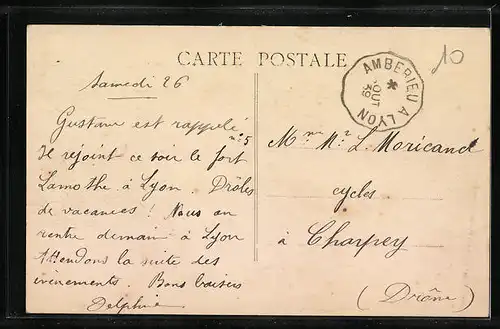 CARTE POSTALE
10
AMBERIEU A LYON
* OUT
39
Samedi 26
Gustave est rappelé
n° 5
Il rejoint ce soir le fort
Lamothe à Lyon. Drôles
de vacances! Nous on
rentre demain à Lyon
Attendons la suite des
évènements. Bons baisers
Delphine
Mme Mr L. Moricand
cycles
à Charpey
(Drôme)